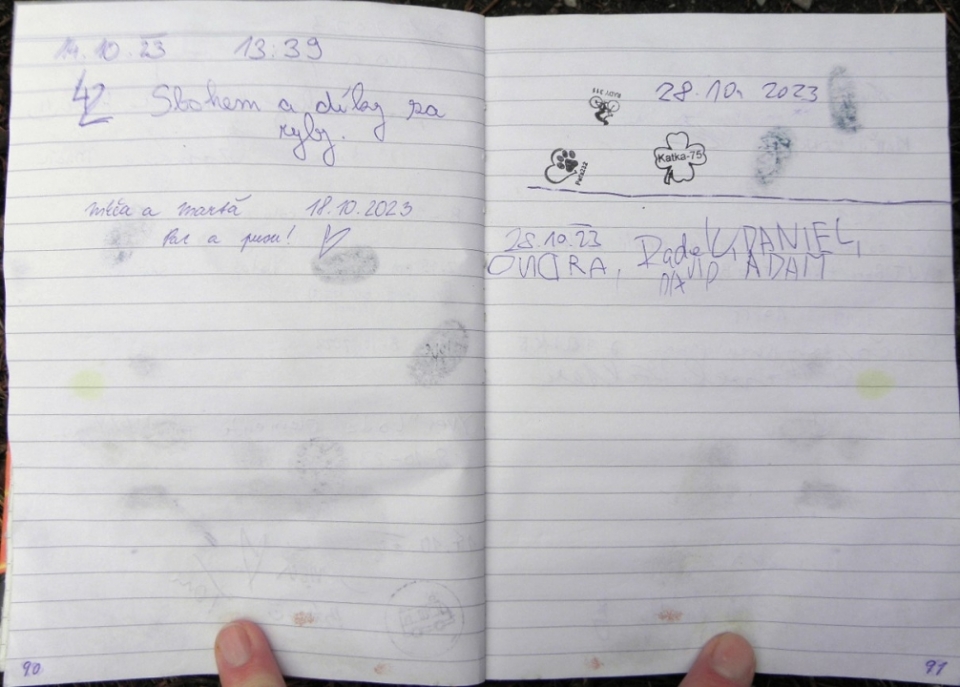 14.10.23 13:39
42 Sbohem a díky za
ryby.
a 18.10.2023
Pac a pusu!
90
28.10. 2023
Katka-75
28.10.23
ONDRA, Radek, DANIEL,
DAVID ADAM
91